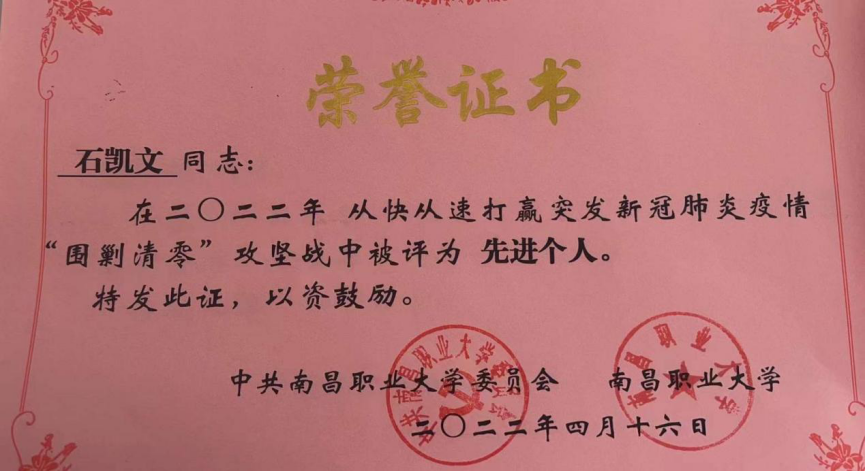 荣誉证书
石凯文 同志：
在二〇二二年 从快从速打赢突发新冠肺炎疫情
“围剿清零”攻坚战中被评为 先进个人。
特发此证，以资鼓励。
中共南昌职业大学委员会 南昌职业大学
二〇二二年四月十六日
中共南昌职业大学委员会
南昌职业大学